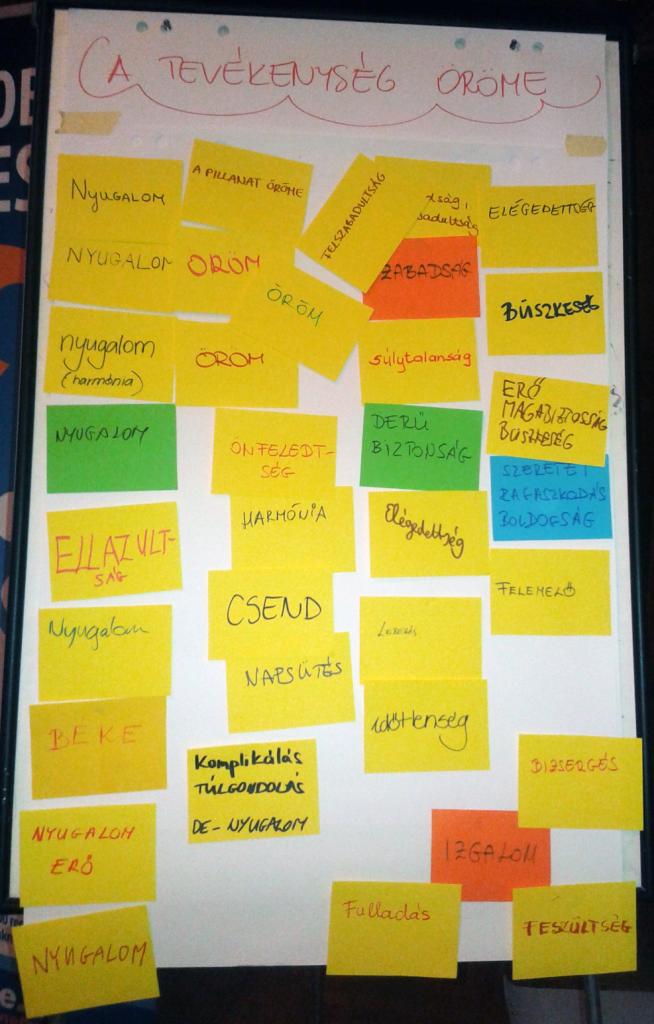 A TEVÉKENYSÉG ÖRÖME
NYUGALOM
NYUGALOM
nyugalom
(harmónia)
NYUGALOM
ELLAZULT-
SÁG
Nyugalom
BÉKE
NYUGALOM
ERŐ
NYUGALOM
A PILLANAT ÖRÖME
ÖRÖM
ÖRÖM
ÖRÖM
ÖNFELEDT-
SÉG
HARMÓNIA
CSEND
NAPSÜTÉS
Komplikálás
TÚLGONDOLÁS
DE- NYUGALOM
FELSZABADULTSÁG
ZABADSÁG
súlytalanság
DERŰ
BIZTONSÁG
Elégedettség
LEBEGÉS
időtlenség
IZGALOM
Fulladás
ELÉGEDETTSÉG
BÜSZKESÉG
ERŐ
MAGABIZTOSSÁG
BÜSZKESÉG
SZERETET
RAGASZKODÁS
BOLDOGSÁG
FELEMELŐ
BIZSERGÉS
FESZÜLTSÉG